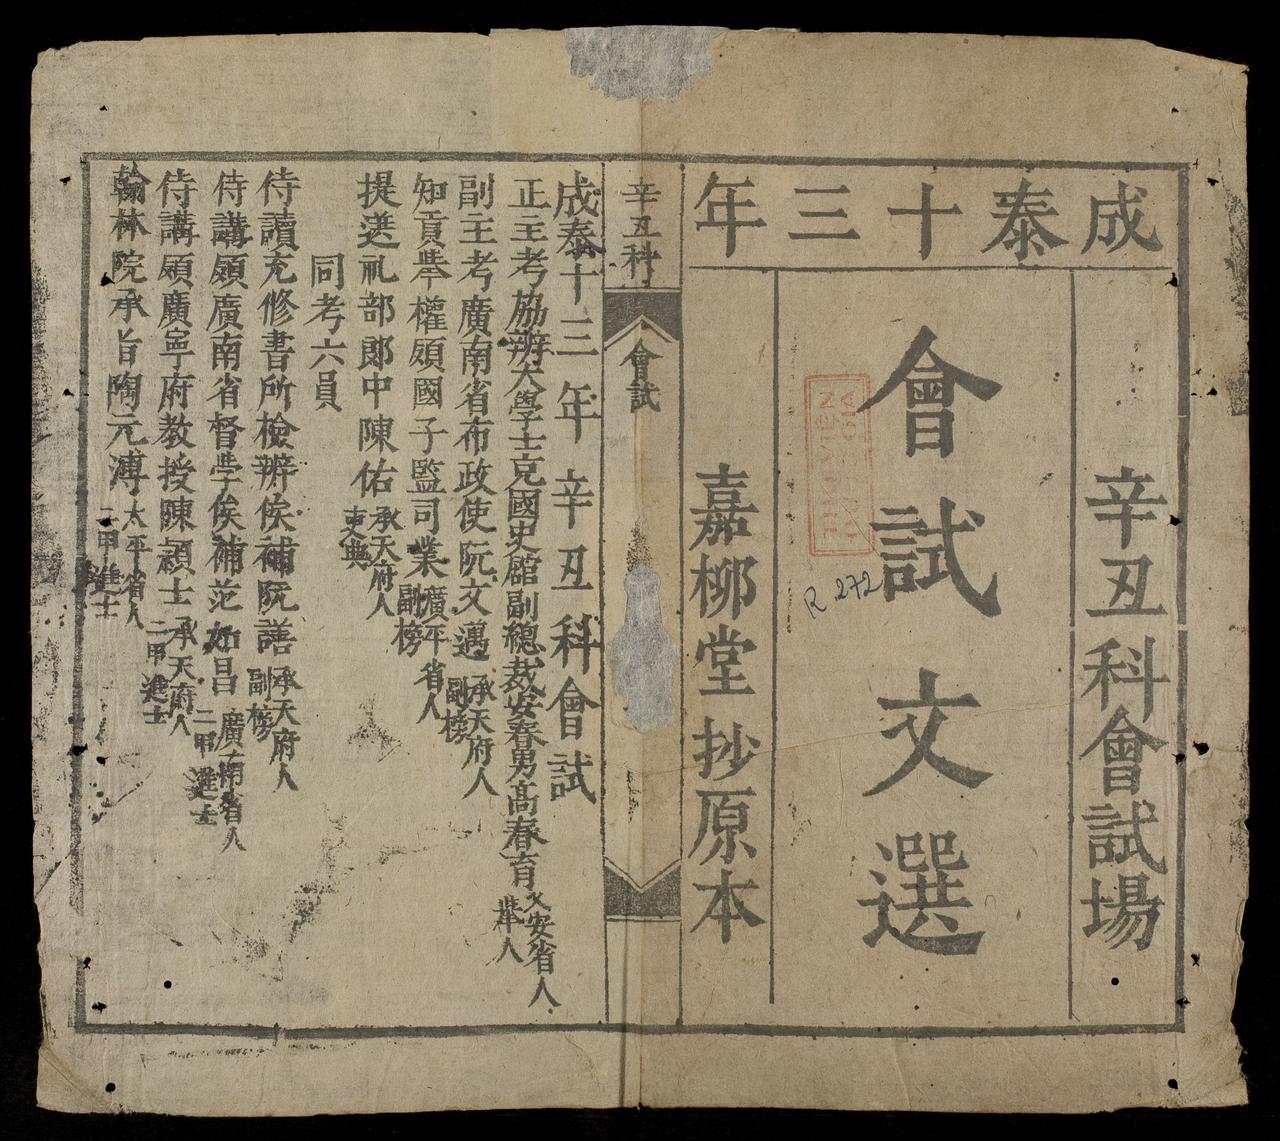 成泰十三年
辛丑科會試場
會試文選
嘉柳堂抄原本
R 272
辛丑科
會試
成泰十三年辛丑科會試
正主考協辦大學士充國史館副總裁安春男高春育乂安省人
舉人
副主考廣南省布政使阮文邁承天府人
副榜
知貢舉權領國子監司業 廣平省人
副榜
提選礼部郎中陳佑承天府人
吏典
同考六員
侍讀充修書所檢辦候補阮譱承天府人
副榜
侍講領廣南省督學候補范如昌廣南省人
二甲進士
侍講領廣寧府教授陳穎士承天府人
二甲進士
翰林院承旨陶元溥太平省人
二甲進士